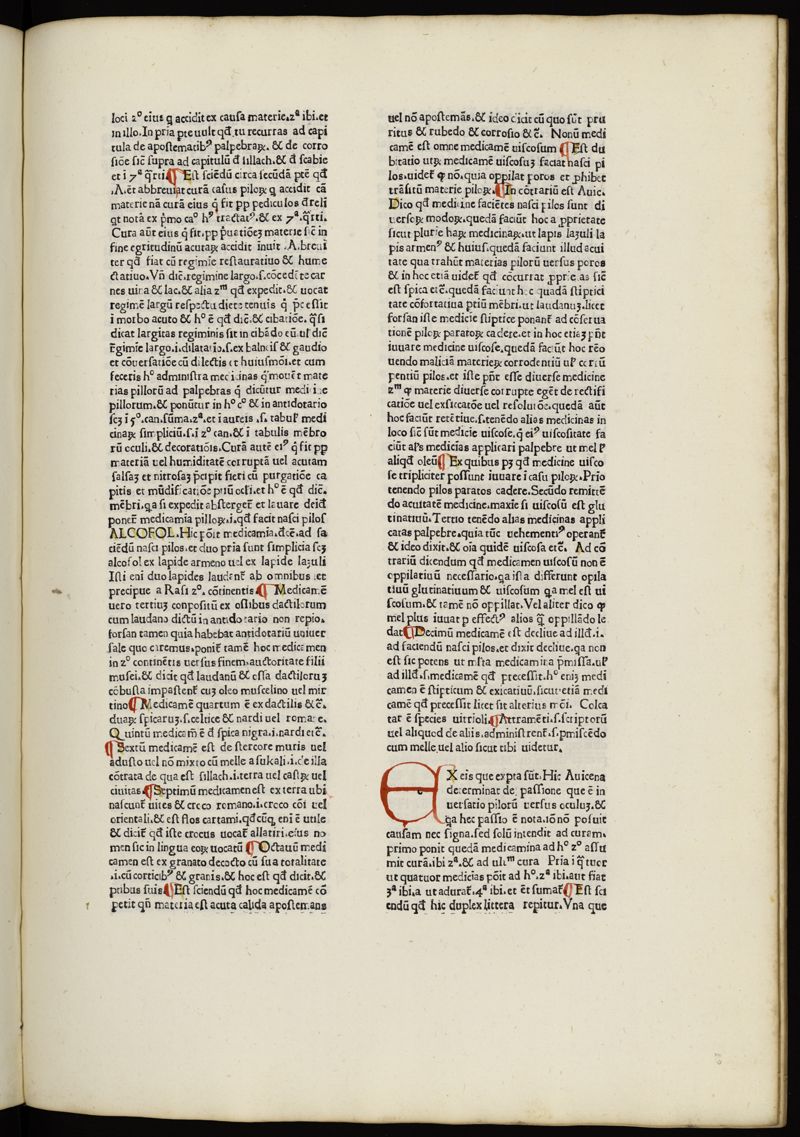 loci 2° eius q̄ accidit ex causa materie.2ª ibi.et
in illo. In pria pte uult qđ tu recurras ad capi
tula de apostematibꝰ palpebraꝝ. & de corro
siōe sic̄ supra ad capitulū đ sillach.& đ scabie
et i 7ª q̄rti. Est sciēdū circa secūdā ptē qđ
.A. et abbreuiat curā casus piloꝝ q̄ accidit cā
materie nā curā eius q̄ fit pp pediculos đreli
qt notā ex p̄mo ca° h⁹ tractatꝰ.& ex 7ª.q̄rti.
Cura aūt eius q̄ fit.pp p̄uatiōeʒ materie sic̄ in
fine egritudinū acutaꝝ accidit inuit .A. breui
ter qđ fiat cū regimie restauratiuo & hume
ctatiuo. Vn̄ diē. regimine largo.s.cōcedēte car
nes uina & lac.& alia 2ᵐ qđ expedit.& uocat
regimē largū respectu diete tenuis q̄ p̄cestit
i morbo acuto & h° ē qđ diē.& cibatiōe. q̄si
dicat largitas regiminis sit in cibādo cū ul' diē
r̄gimie largo.i.dilatatio.s.ex balneis & gaudio
et cōuersatiōe cū dilectis et huiusmōi.et cum
feceris h° administra medicinas q̄ mouēt mate
rias pillorū ad palpebras q̄ dicūtur medicine
pillorum.& ponūtur in h° c° & in antidotario
scʒ i 5°.can.sūma.2ª.et i aureis .s. tabul' medi
cinaꝝ simpliciū.s.i 2° can.& i tabulis mēbro
rū oculi.& decoratiōis. Curā autē ei⁹ q̄ fit pp
materiā uel humiditatē corruptā uel acutam
salsaʒ et nitrosaʒ p̄cipit fieri cū purgatiōe ca
pitis et mūdificatiōe p̄iū ocli.et h° ē qđ diē.
mēbri.qa si expedit abstergere et lauare deiđ
ponere medicamia pilloꝝ.i.qđ facit nasci pilos
ALCOFOL. Hic pōit medicamia.đcē.ad fa
ciēdū nasci pilos.et duo pria sunt simplicia scʒ
alcofol ex lapide armeno uel ex lapide lazuli
Isti eni duo lapides laudent ab omnibus et
precipue a Rasi 2°. cōtinentis Medicamē
uero tertiuʒ conpositū ex ossibus dactilorum
cum laudano dictū in antidotario non repio.
forsan tamen quia habebat antidotariū uniuer
sale quo caremus.ponit tamē hoc medicamen
in 2° continētis uersus finem.auctoritate filii
musei.& dicit qđ laudanū & essa dactiloruʒ
cōbusta impastent cuʒ oleo muscelino uel mir
tino Medicamē quartum ē ex dactilis & c̄.
duaꝝ spicaruʒ.s.celtice & nardi uel romane.
Quintū medicam̄ ē đ spica nigra.i.nardi etc̄.
Sextū medicamē est de stercore muris uel
adusto uel nō mixto cū melle a sukali.i.de illa
cōtrata de qua est sillach.i.terra uel castꝝ uel
ciuitas. Septimū medicamen est ex terra ubi
nascunt uites & croco romano.i.croco cōi uel
orientali.& est flos cartami.qđcūqꝫ eni ē utile
& dicit qđ iste crocus uocat allatiri.eius no
men sic in lingua eoꝝ uocatū Octauū medi
camen est ex granato decocto cū sua totalitate
.i.cū corticib⁹ & granis.& hoc est qđ dicit.&
ptibus suis Est sciendū qđ hoc medicamē cō
petit qn̄ materia est acuta calida apostemans
uel nō apostemās.& ideo dicit cū quo sūt pru
ritus & rubedo & corrosio & c̄. Nonū medi
camē est omne medicamē uiscosum Est du
bitatio utꝝ medicamē uiscosuʒ faciat nasci pi
los.uidet ꝙ nō.quia oppilat poros et phibet
trāsitū materie piloꝝ. In cōtrariū est Auic.
Dico qđ medicine faciētes nasci pilos sunt di
uersoꝝ modoꝝ.quedā faciūt hoc a pprietate
sicut plurie haꝝ medicinaꝝ.ut lapis lazuli la
pis armen⁹ & huius.quedā faciunt illud acui
tate qua trahūt materias pilorū uersus poros
& in hec etiā uidet qđ cōcurrat pprie as sic̄
est spica etc̄.quedā faciunt hec quadā stiptici
tate cōfortatiua ptiū mēbri.ut laudanuʒ.licet
forsan iste medicie stiptice ponant ad cōserua
tionē piloꝝ paratoꝝ cadere.et in hoc etiaʒ p̄nt
iuuare medicine uiscose.quedā faciūt hoc rēo
uendo maliciā materieꝝ corrodentiū ul' corrū
pentiū pilos.et iste p̄nt esse diuerse medicine
2ᵐ ꝙ materie diuerse corrupte egent de rectifi
catiōe uel exsiccatōe uel resolutōe.quedā aūt
hoc faciūt retētiue.s.tenēdo alias medicinas in
loco sic̄ sūt medicie uiscose.q̄ ei⁹ uiscositate fa
ciūt al's medicias applicari palpebre ut mel l'
aliqđ oleū Ex quibus pʒ qđ medicine uisco
se tripliciter possunt iuuare i casu piloꝝ. Prio
tenendo pilos paratos cadere. Secūdo remittē
do acuitatē medicine.maxie si uiscosū est glu
tinatiuū. Tertio tenēdo alias medicinas appli
catas palpebre.quia tūc uehementi⁹ operant
& ideo dixit.& oīa quidē uiscosa etc̄. Ad cō
trariū dicendum qđ medicamen uiscosū non ē
oppilatiuū necessario.qa ista differunt opila
tiuū glutinatiuum & uiscosum qa mel est ui
scosum.& tamē nō oppillat. Vel aliter dico ꝙ
mel plus iuuat p effectꝰ alios q̄ oppillādo le
dat Decimū medicamē est decliue ad illđ.i.
ad faciendū nasci pilos.et dixit decliue.qa non
est sic potens ut mr̄a medicamina p̄missa.ul'
ad illđ.s.medicamē qđ precessit.h° eniʒ medi
camen ē stipticum & exicatiuū.sicut etiā medi
camē qđ precessit licet sit alterius mōi. Colca
tar ē species uitrioli. Attramēti.s.scriptorū
uel aliquod de aliis.administrent.s.pmiscēdo
cum melle.uel alio sicut tibi uidetur.
EX eis que expta sūt. Hic Auicena
determinat de passione que ē in
uersatio pilorū uersus oculuʒ.&
qa hec passio ē nota.iō nō posuit
causam nec signa.sed solū intendit ad curam.
primo ponit quedā medicamina ad h° 2° assu
mit curā.ibi 2ª.& ad ultᵐ cura Pria i q̄tuor
ut quatuor medicias pōit ad h°.2ª ibi.aut fiat
3ª ibi.a ut adurat.4ª ibi.et ēt sumat Est sci
endū qđ hic duplex littera repitur. Vna que